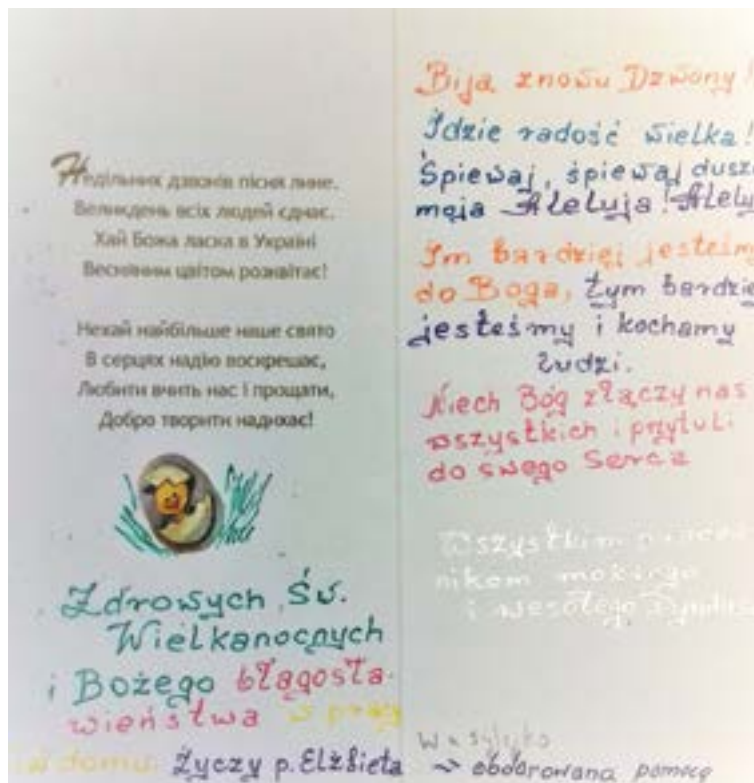 Недільних дзвонів пісня лине.
Великдень всіх людей єднає.
Хай Божа ласка в Україні
Весняним цвітом розквітає!
Нехай найбільше наше свято
В серцях надію воскрешає,
Любити вчить нас і прощати,
Добро творити надихає!
Zdrowych Św.
Wielkanocnych
i Bożego błągosła-
wieństwa w pracy
i w domu. Życzy p. Elżbieta
Biją znowu Dzwony!
Idzie radość wielka!
Śpiewaj, śpiewaj
moja Aleluja!
Im bardziej jesteśmy
do Boga, tym
jesteśmy i kochamy
ludzi.
Niech Bóg złączy nas
wszystkich i przytuli
do swego Serca
Wszystkim
nikom mokrego
i wesołego
obdarowana pomocą